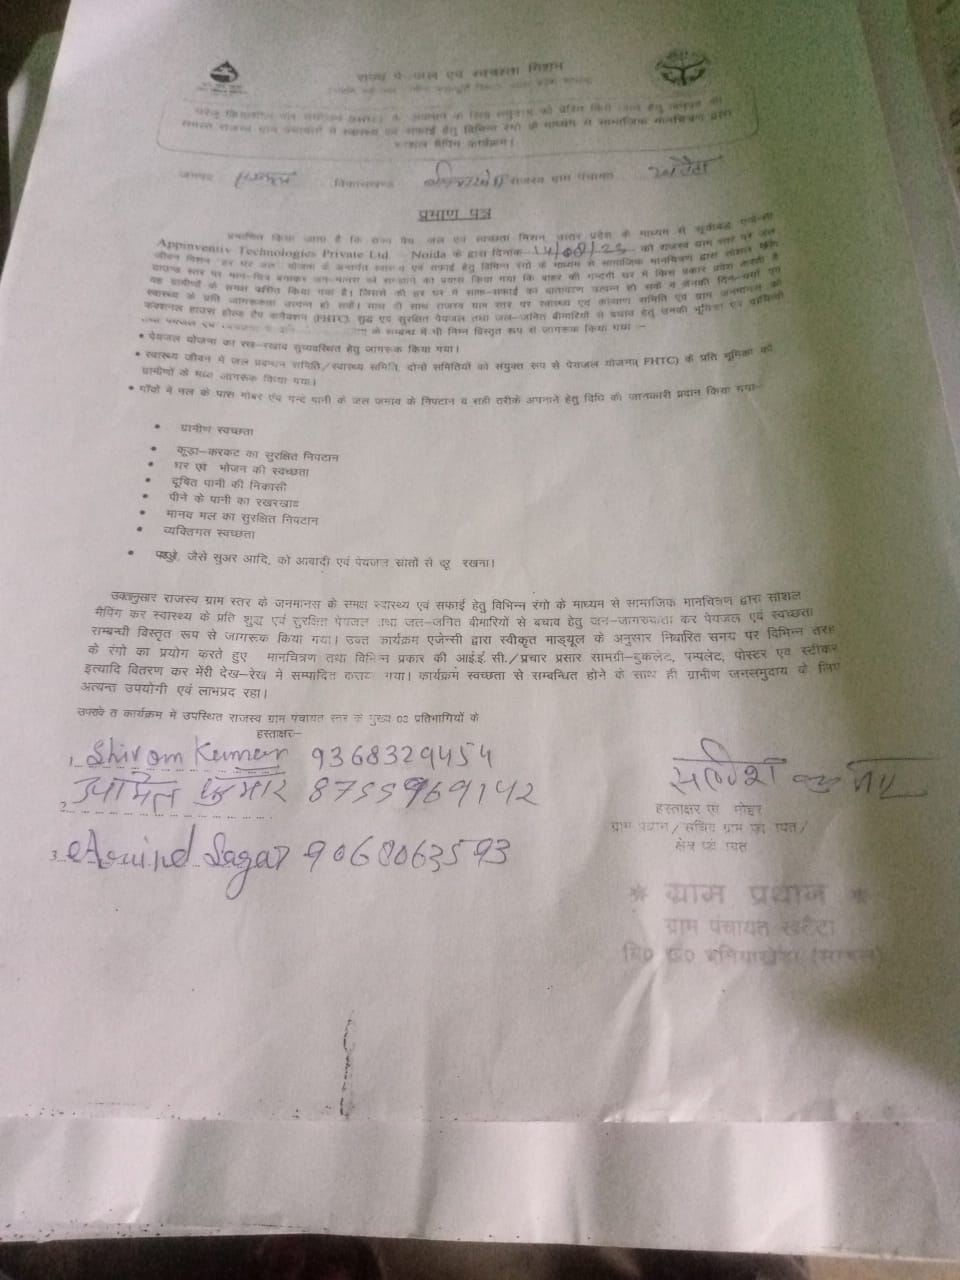 राज्य पेयजल एवं स्वच्छता मिशन
समस्त राजस्व ग्राम पंचायतों में स्वास्थ्य एवं सफाई हेतु विभिन्न रंगों के माध्यम से सामाजिक मानचित्रण द्वारा
सोशल मैपिंग कार्यक्रम।
जनपद विकासखण्ड राजस्व ग्राम पंचायत
प्रमाण पत्र
प्रमाणित किया जाता है कि राज्य पेय जल एवं स्वच्छता मिशन, उत्तर प्रदेश के माध्यम से सूचीबद्ध एजेन्सी
Appinventiv Technologies Private Ltd. - Noida के द्वारा दिनांक 14/08/23 को राजस्व ग्राम स्तर पर जल
जीवन मिशन "हर घर जल" योजना के अन्तर्गत स्वास्थ्य एवं सफाई हेतु विभिन्न रंगों के माध्यम से सामाजिक मानचित्रण द्वारा सोशल
ग्राउण्ड स्तर पर मान-चित्र बनाकर जन-मानस को समझाने का प्रयास किया गया कि बाहर की गन्दगी घर में किस प्रकार प्रवेश करती है
यह ग्रामीणों के समक्ष प्रदर्शित किया गया है। जिससे की हर घर में साफ-सफाई का वातावरण उत्पन्न हो सके
स्वास्थ्य के प्रति जागरूकता उत्पन्न हो सके। साथ ही साथ राजस्व ग्राम स्तर पर स्वास्थ्य एवं कल्याण समिति एवं ग्राम जनमानस को
फंक्शनल हाउस होल्ड टैप कनेक्शन (FHTC), शुद्ध एवं सुरक्षित पेयजल तथा जल-जनित बीमारियों से बचाव हेतु उनकी भूमिका एवं
के सम्बन्ध में भी निम्न विस्तृत रूप से जागरूक किया गया :-
• पेयजल योजना का रख-रखाव सुव्यवस्थित हेतु जागरूक किया गया।
• स्वास्थ्य जीवन में जल प्रबन्धन समिति/स्वास्थ्य समिति, दोनों समितियों को संयुक्त रूप से पेयजल योजना( FHTC) के प्रति भूमिका को
ग्रामीणों के मध्य जागरूक किया गया।
• गाँवों में नल के पास गोबर एंव गन्दे पानी के जल जमाव के निपटान व सही तरीके अपनाने हेतु विधि की जानकारी प्रदान किया गया-
• ग्रामीण स्वच्छता
• कूड़ा-करकट का सुरक्षित निपटान
• घर एवं भोजन की स्वच्छता
• दूषित पानी की निकासी
• पीने के पानी का रखरखाव
• मानव मल का सुरक्षित निपटान
• व्यक्तिगत स्वच्छता
• जैसे सुअर आदि, को आबादी एवं पेयजल स्रोतों से दूर रखना।
उक्तानुसार राजस्व ग्राम स्तर के जनमानस के समक्ष स्वास्थ्य एवं सफाई हेतु विभिन्न रंगो के माध्यम से सामाजिक मानचित्रण द्वारा सोशल
मैपिंग कर स्वास्थ्य के प्रति शुद्ध एवं सुरक्षित पेयजल तथा जल-जनित बीमारियों से बचाव हेतु जन-जागरुकता कर पेयजल एवं स्वच्छता
सम्बन्धी विस्तृत रूप से जागरूक किया गया। उक्त कार्यक्रम एजेन्सी द्वारा स्वीकृत माड्यूल के अनुसार निर्धारित समय पर विभिन्न तरह
के रंगो का प्रयोग करते हुए मानचित्रण तथा विभिन्न प्रकार की आई.ई.सी./प्रचार प्रसार सामग्री-बुकलेट, पम्पलेट, पोस्टर एवं स्टीकर
इत्यादि वितरण कर मेरी देख-रेख में सम्पादित कराया गया। कार्यक्रम स्वच्छता से सम्बन्धित होने के साथ ही ग्रामीण जनसमुदाय के लिए
अत्यन्त उपयोगी एवं लाभप्रद रहा।
कार्यक्रम में उपस्थित राजस्व ग्राम पंचायत स्तर के मुख्य 03 प्रतिभागियों के
हस्ताक्षर-
1. Shivam Kumar 9368329454
2. अमित कुमार 8755969142
3. Arvind Sagar 9068063593
कुमार
हस्ताक्षर एवं मोहर
ग्राम प्रधान/सचिव ग्राम पंचायत/
क्षेत्र पंचायत
* ग्राम प्रधान *
ग्राम पंचायत खटैटा
वि० ख० बनियाखेड़ा (सम्भल)